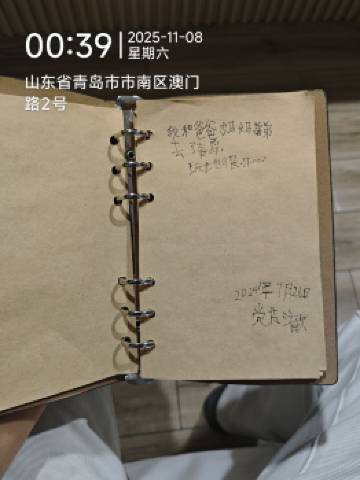 00:39
2025-11-08
星期六
山东省青岛市市南区澳门
路2号
我和爸爸妈妈弟弟
去了青岛,
2024年7月26日